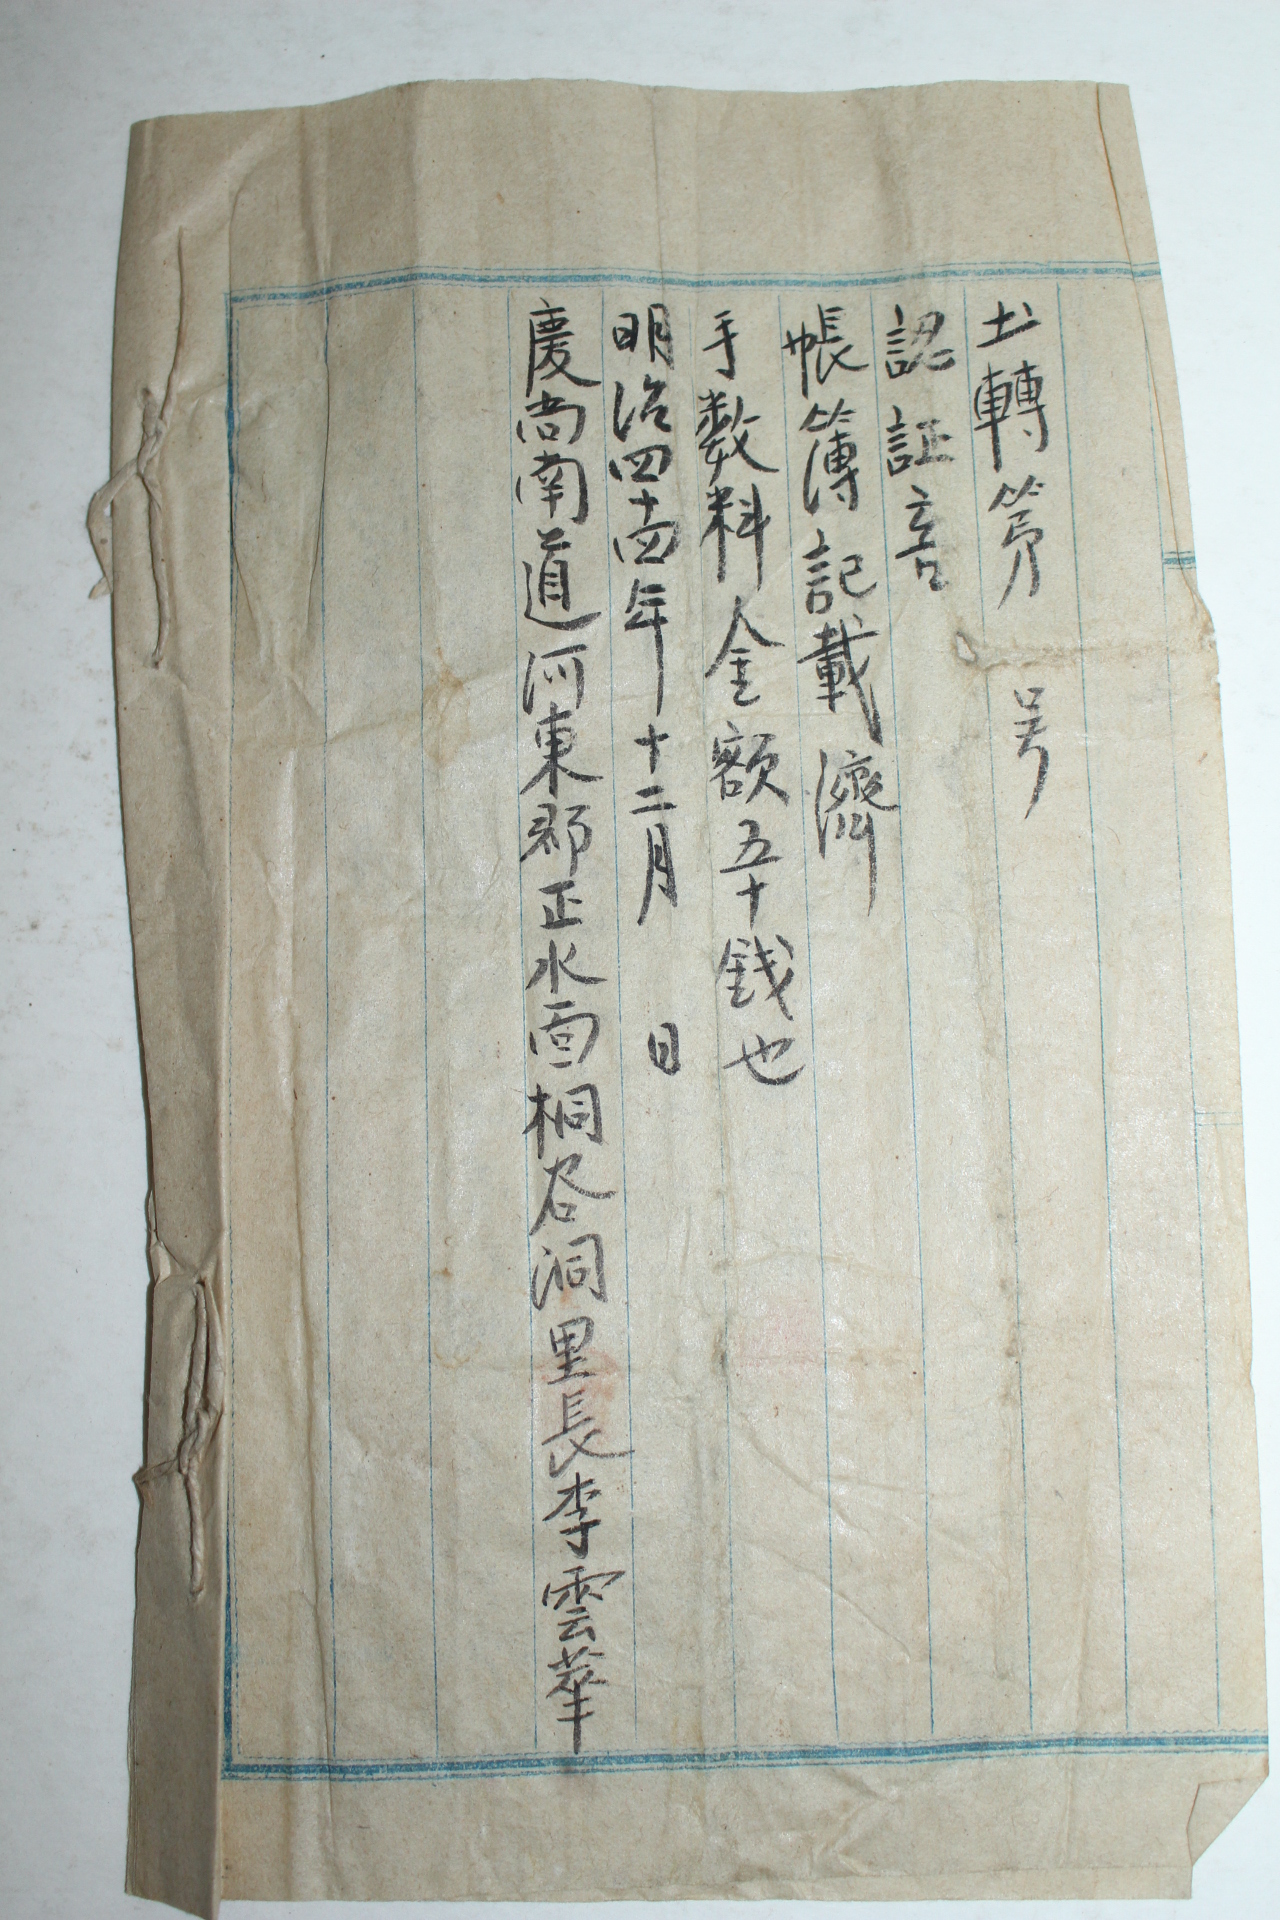 土轉第　号
認証書
帳簿記載濟
手数料金額五十銭也
明治四十四年十二月　日
慶尚南道河東郡正水面桐谷洞里長李雲華